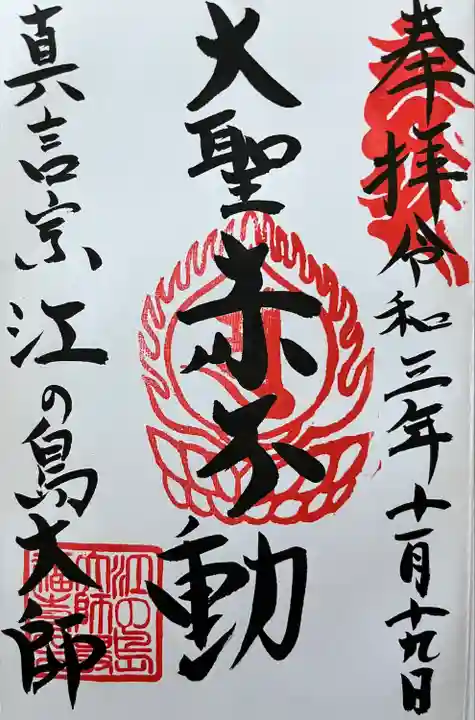 奉拝 令和三年十一月十九日
大聖赤不動
真言宗 江の島大師
江の島
大師